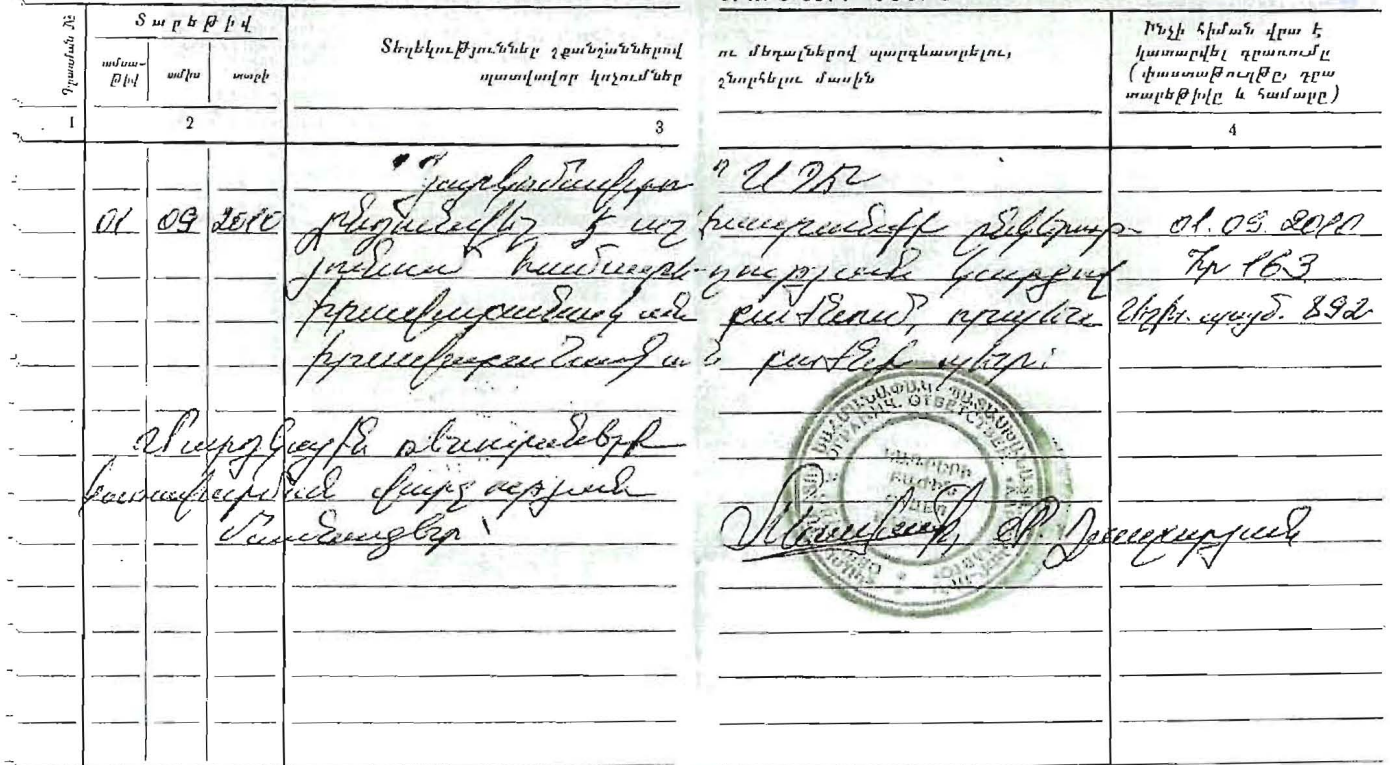 Գրառման №
Տարեթիվ
ամսա-
թիվ
ամիս
տարի
Տեղեկություններ շքանշաններով ու մեդալներով պարգևատրելու,
պատվավոր կոչումներ շնորհելու մասին
Ինչի հիման վրա է
կատարվել գրառումը
(փաստաթուղթը, դրա
տարեթիվը և համարը)
1 2 3 4
ՍՊԸ
01 09 2010 ընդունվել է աշխատանքի ընկերու- 01.09.2010
թյունում համատեղության կարգով Հր 163
իրավաբանական բաժնում, որպես Աշխ. պայմ. 892
իրավաբանական բաժնի պետ:
Մարդկային ռեսուրսների
կառավարման վարչության
մասնագետ՝